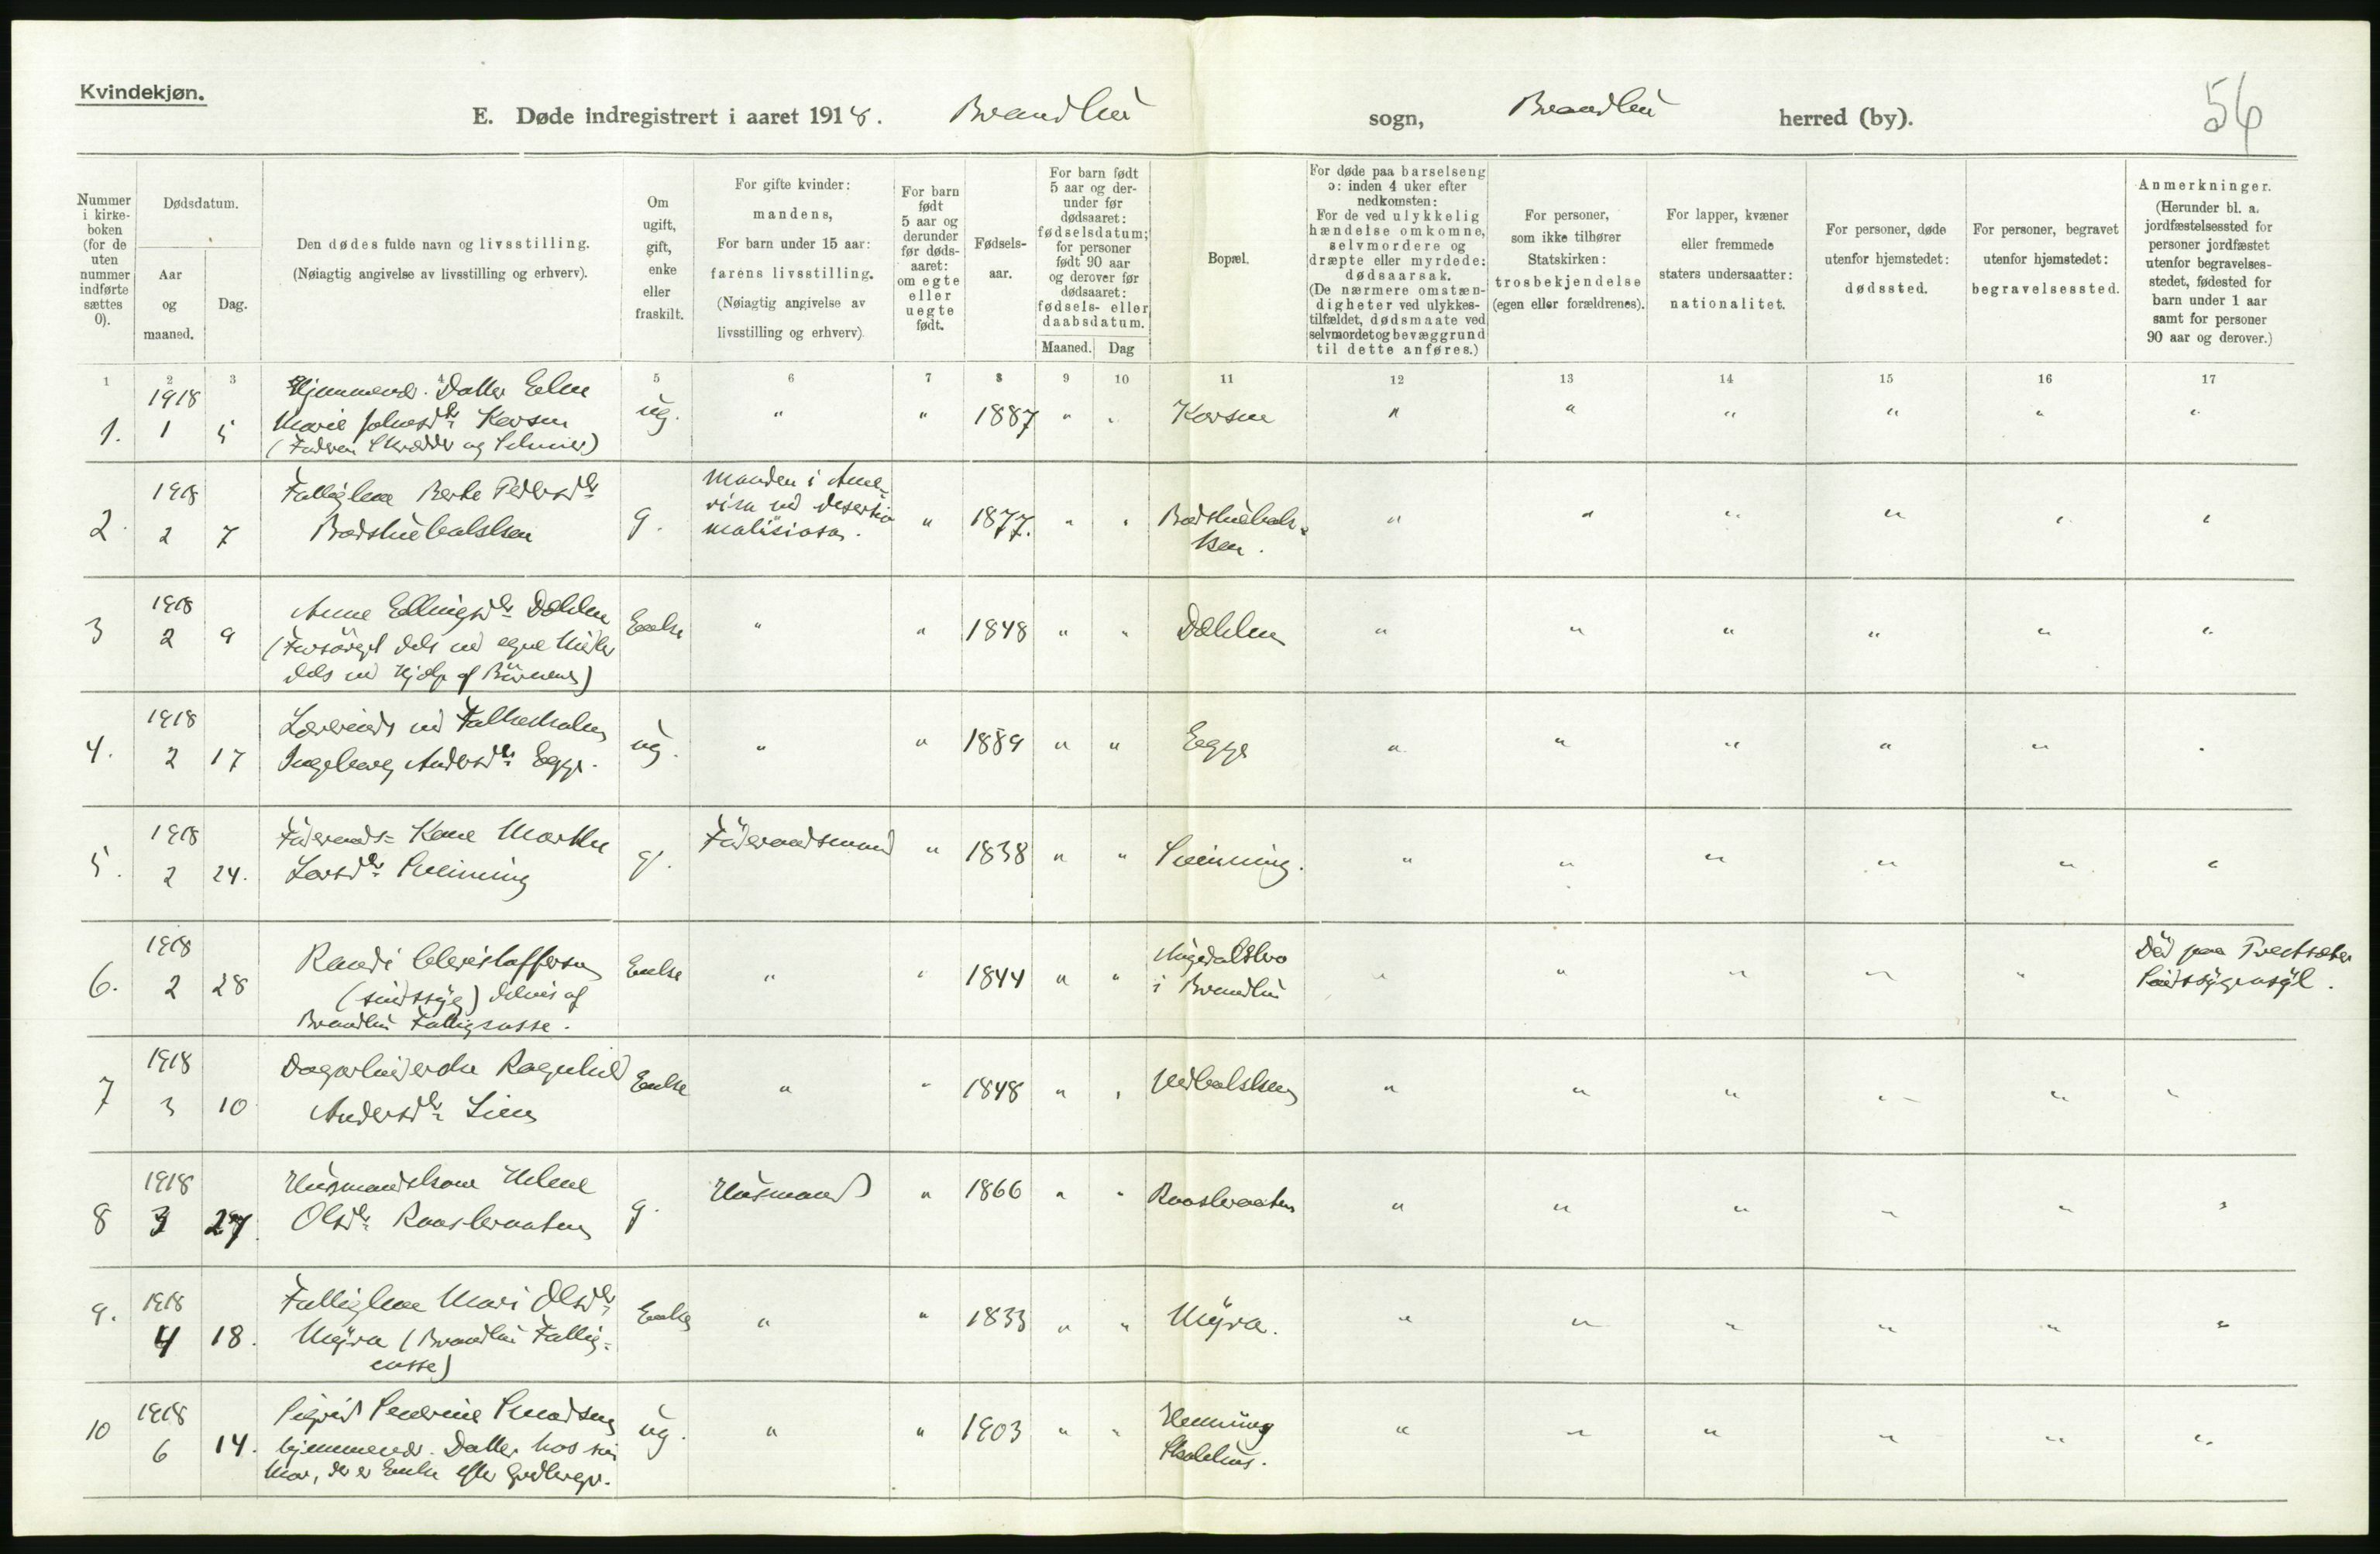 Kvindekjøn.
E. Døde indregistrert i aaret 1918. Brandbu sogn, Brandbu herred (by). 56
Nummer i kirkeboken (for de uten nummer indførte sættes 0).
Dødsdatum.
Aar og maaned.
Dag.
Den dødes fulde navn og livsstilling.
(Nøiagtig angivelse av livsstilling og erhverv).
Om ugift, gift, enke eller fraskilt.
For gifte kvinder:
mandens,
For barn under 15 aar:
farens livsstilling.
(Nøiagtig angivelse av
livsstilling og erhverv)
For barn født 5 aar og derunder før dødsaaret: om egte eller uegte født.
Fødselsaar.
For barn født 5 aar og derunder før dødsaaret: fødselsdatum; for personer født 90 aar og derover før dødsaaret: fødsels- eller daabsdatum.
Maaned. Dag
Bopæl.
For døde paa barselseng
ɔ: inden 4 uker efter
nedkomsten:
For de ved ulykkelig
hændelse omkomne,
selvmordere og
dræpte eller myrdede:
dødsaarsak.
(De nærmere omstæn-
digheter ved ulykkes-
tilfældet, dødsmaate ved
selvmordet og bevæggrund
til dette anføres.)
For personer,
som ikke tilhører
Statskirken:
trosbekjendelse
(egen eller forældrenes).
For lapper, kvæner
eller fremmede
staters undersaatter:
nationalitet.
For personer, døde
utenfor hjemstedet:
dødssted.
For personer, begravet
utenfor hjemstedet:
begravelsessted.
Anmerkninger.
(Herunder bl. a.
jordfæstelsessted for
personer jordfæstet
utenfor begravelses-
stedet, fødested for
barn under 1 aar
samt for personer
90 aar og derover.)
1 2 3 4 5 6 7 8 9 10 11 12 13 14 15 16 17
1918 Hjemmevær. Datter
1. 1 5 Marie ug. " " 1887 " " " " " " " "
(Faderen Skrædder og
1918 Fattiglem Berte Pedersdtr Manden i Ame-
2. 2 7 g. rika ved desertio " 1877. " " " " " " " "
malisiosa.
1918 Anne Ellingsdtr Dæhlen
3 2 9 (Forsörget dels ved egne Midler Enke " " 1848 " " Dæhlen " " " " " "
dels ved Hjælp af Börnene)
1918 Lærerinde ved Folkeskolen
4. 2 17 Ingeborg Andersdtr Egge. ug. " " 1889 " " Egge " " " " " "
1918 Föderaads= Kone Marthe
5. 2 24. Larsdtr g. Föderaadsmand " 1838 " " " " " " " "
1918 Randi
6. 2 28 (sindssyg) delvis af Enke " " 1844 " " i Brandbu " " " " " Död paa
Brandbu Fattigkasse. Sindssygeasyl.
1918 Dagarbeiderske Ragnhild
7 3 10 Andersdtr Lien Enke " " 1848 " " " " " " " "
1918 Husmandskone Helene
8 3 27. Olsdtr g. Husmand " 1866 " " " " " " " "
1918 Fattiglem Mari Olsdtr
9. 4 18. Myra (Brandbu Fattig= Enke " " 1833 " " Myra. " " " " " "
casse)
1918 Sigrid Severine
10 6 14. hjemmevær. Datter hos sin ug. " " 1903 " " Henning " " " " " "
Mor, der er Enke efter